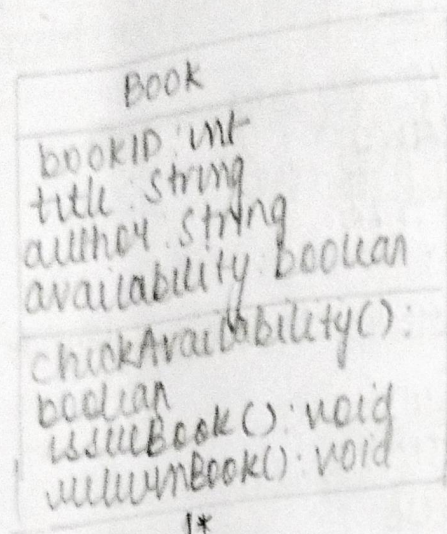 Book
bookID : int
title : string
author : string
availability : boolean
checkAvailability() :
boolean
issueBook() : void
returnBook() : void
1*